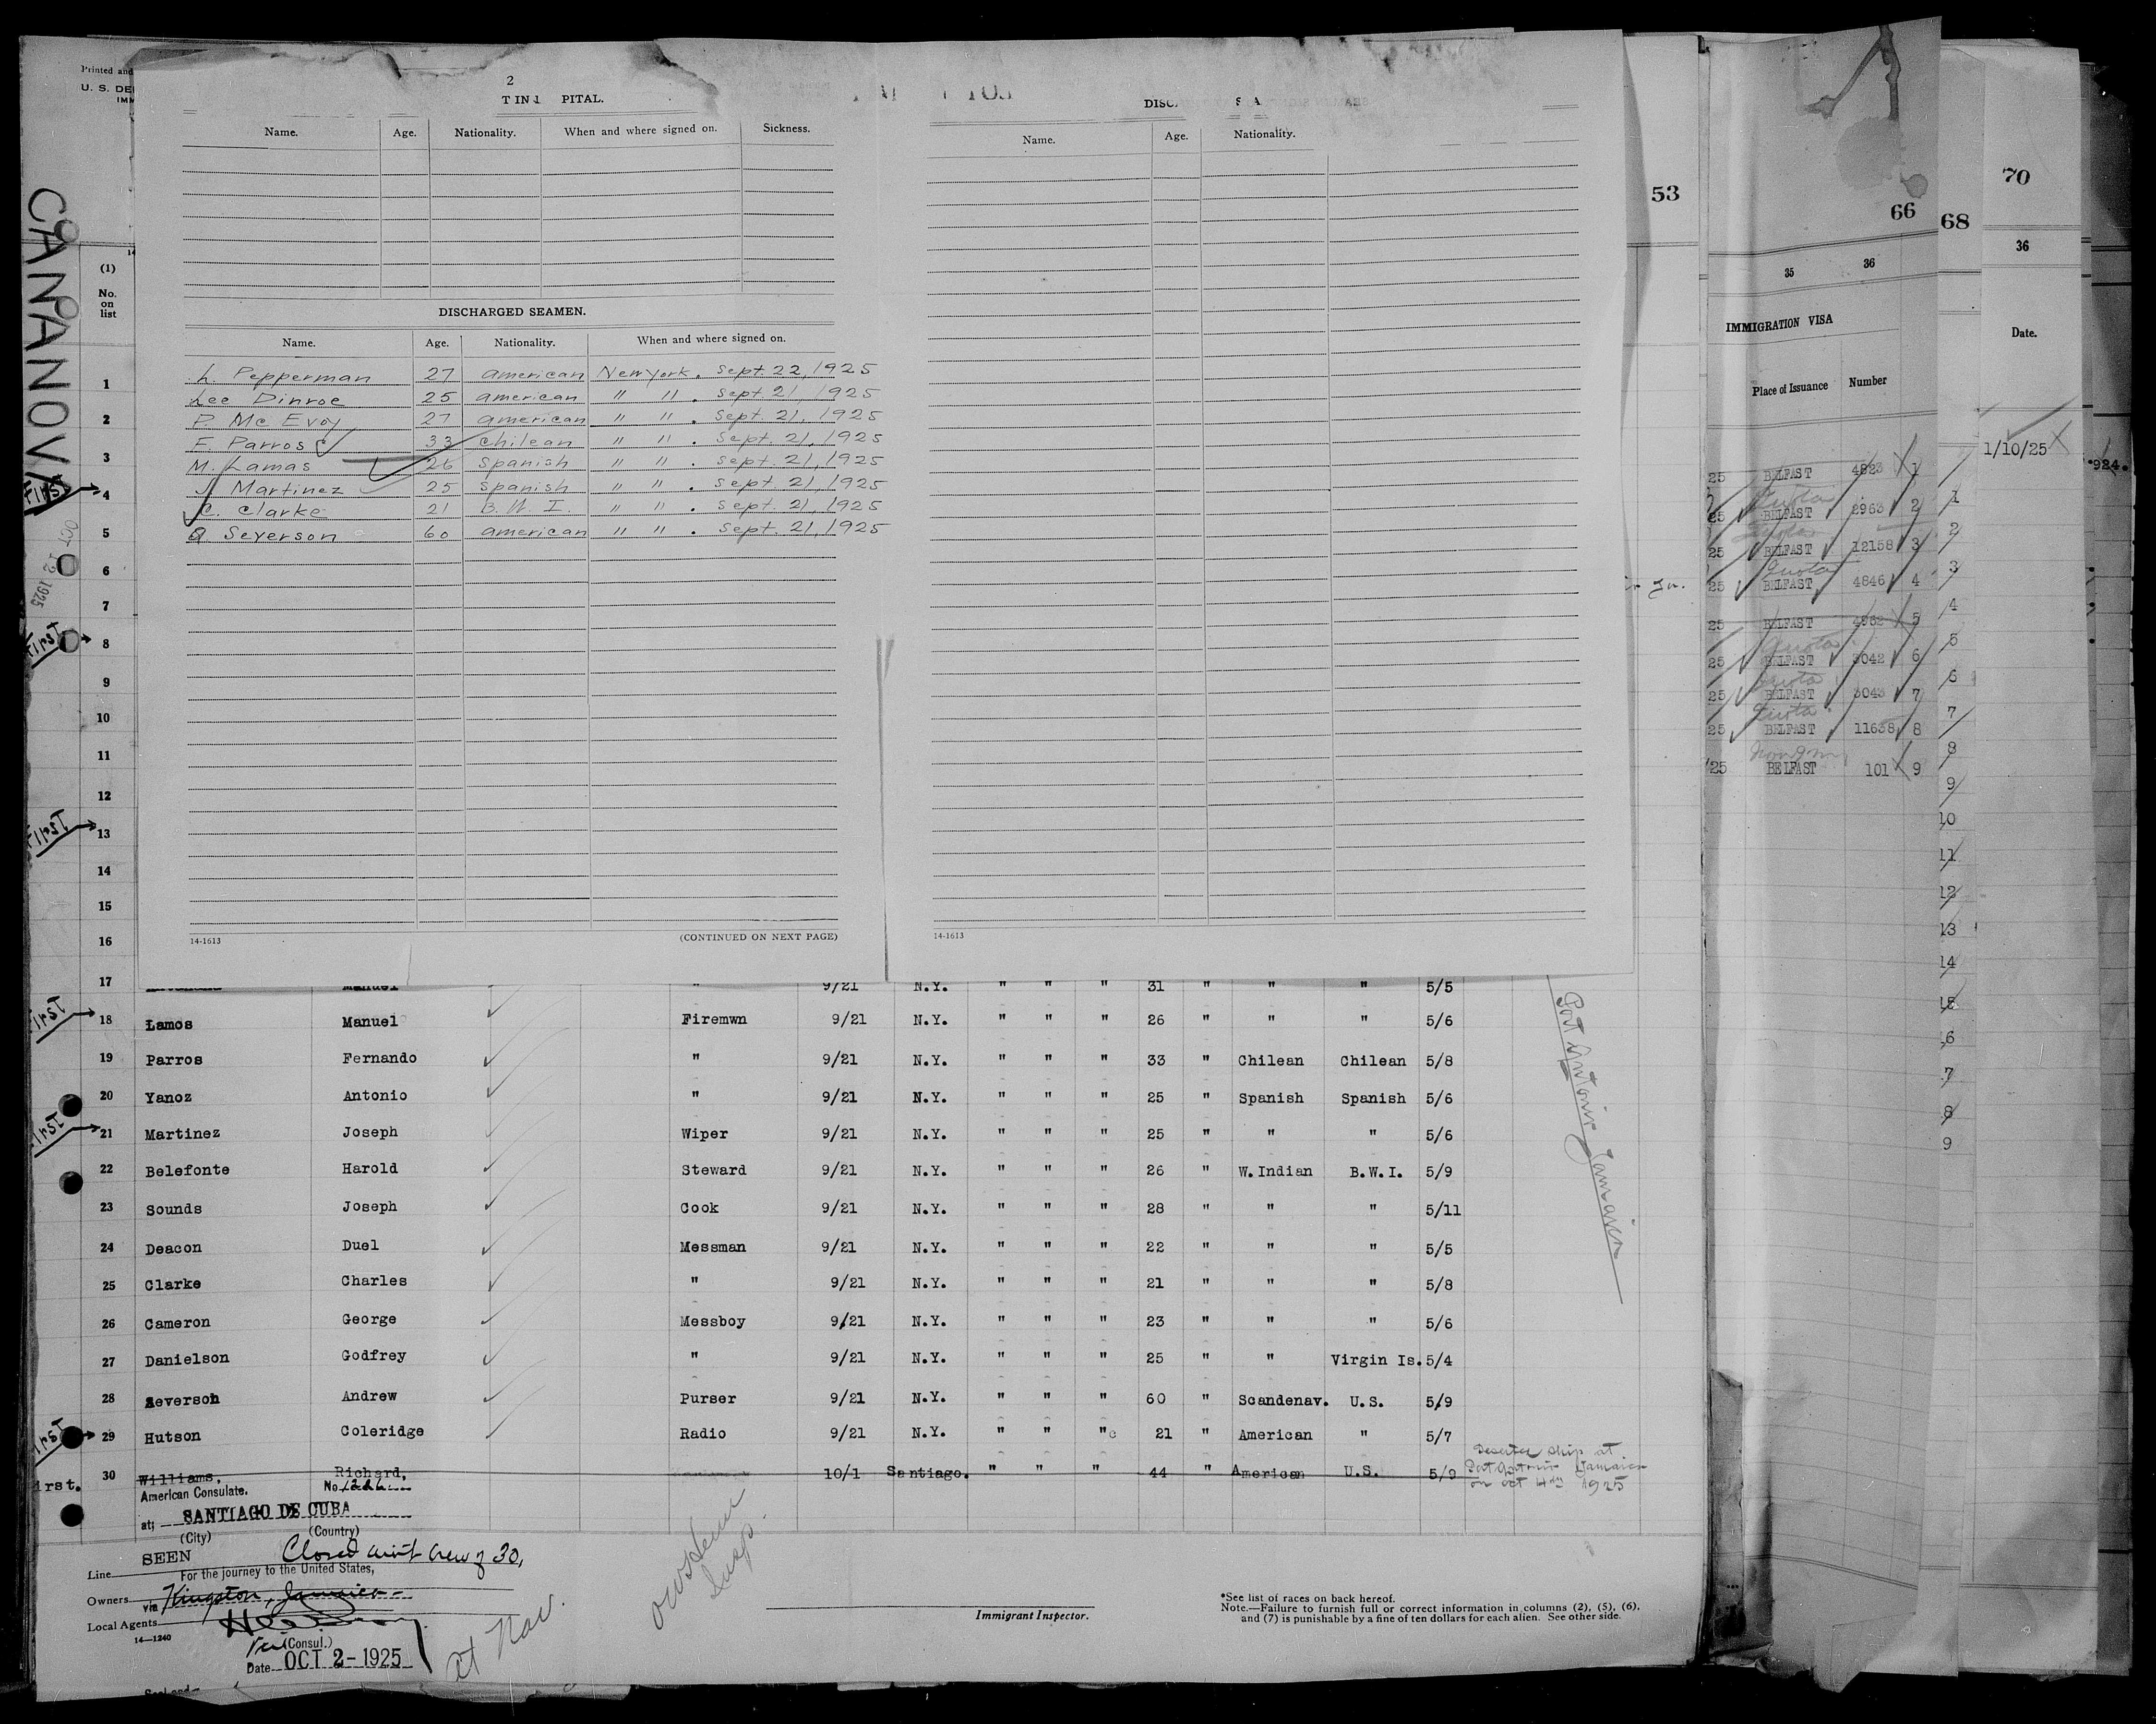 Printed and
U. S. DE
IMM
2
T IN PITAL.
Name. Age. Nationality. When and where signed on. Sickness.
DISCHARGED SEAMEN.
Name. Age. Nationality. When and where signed on.
L. Pepperman 27 american New York. Sept. 22, 1925
Lee Dinroe 25 american " " . Sept 21, 1925
P. Mc Evoy 27 american " " . Sept. 21, 1925
F. Parros 33 Chilean " " . Sept. 21, 1925
M. Lamas 26 Spanish " " . Sept. 21, 1925
J. Martinez 25 Spanish " " . Sept. 21, 1925
C. Clarke 21 B. W. I. " " . Sept. 21, 1925
A Severson 60 american " " . Sept. 21, 1925
14-1613 (CONTINUED ON NEXT PAGE)
DISC. S A
Name. Age. Nationality.
14-1613
CANANOVA
OCT 12 1925
(1)
No.
on
list
1
2
3
First 4
5
6
7
First 8
9
10
11
12
First 13
14
15
16
17 Manuel " 9/21 N.Y. " " " 31 " " " 5/5
First 18 Lamos Manuel Firemwn 9/21 N.Y. " " " 26 " " " 5/6
19 Parros Fernando " 9/21 N.Y. " " " 33 " Chilean Chilean 5/8
20 Yanoz Antonio " 9/21 N.Y. " " " 25 " Spanish Spanish 5/6
First 21 Martinez Joseph Wiper 9/21 N.Y. " " " 25 " " " 5/6
22 Belefonte Harold Steward 9/21 N.Y. " " " 26 " W.Indian B.W.I. 5/9
23 Sounds Joseph Cook 9/21 N.Y. " " " 28 " " " 5/11
24 Deacon Duel Messman 9/21 N.Y. " " " 22 " " " 5/5
25 Clarke Charles " 9/21 N.Y. " " " 21 " " " 5/8
26 Cameron George Messboy 9/21 N.Y. " " " 23 " " " 5/6
27 Danielson Godfrey " 9/21 N.Y. " " " 25 " " Virgin Is. 5/4
28 Severson Andrew Purser 9/21 N.Y. " " " 60 " Scandenav. U.S. 5/9
First 29 Hutson Coleridge Radio 9/21 N.Y. " " " 21 " American " 5/7
irst. 30 Williams, Richard, 10/1 Santiago. " " " 44 " American U.S. 5/9
Deserted ship at
Port Antonio Jamaica
on Oct 4th 1925
Port Antonio Jamaica
American Consulate. No.
at; SANTIAGO DE CUBA
(City) (Country)
SEEN Closed with Crew of 30,
Line For the journey to the United States,
Owners via Kingston, Jamaica
Local Agents
14—1240
(Consul.)
Date OCT 2-1925
at Nav.
Insp.
Immigrant Inspector.
*See list of races on back hereof.
Note.—Failure to furnish full or correct information in columns (2), (5), (6),
and (7) is punishable by a fine of ten dollars for each alien. See other side.
53
66
35 36
IMMIGRATION VISA
Place of Issuance Number
25 BELFAST 4823 1
25 Quota BELFAST 2963 2
25 Quota BELFAST 12158 3
25 Quota BELFAST 4846 4
25 BELFAST 4962 5
25 Quota BELFAST 3042 6
25 Quota BELFAST 3043 7
25 Quota BELFAST 11638 8
25 BELFAST 101 9
68
1
2
3
4
5
6
7
8
9
10
11
12
13
14
15
6
7
8
9
70
36
Date.
1/10/25
924.